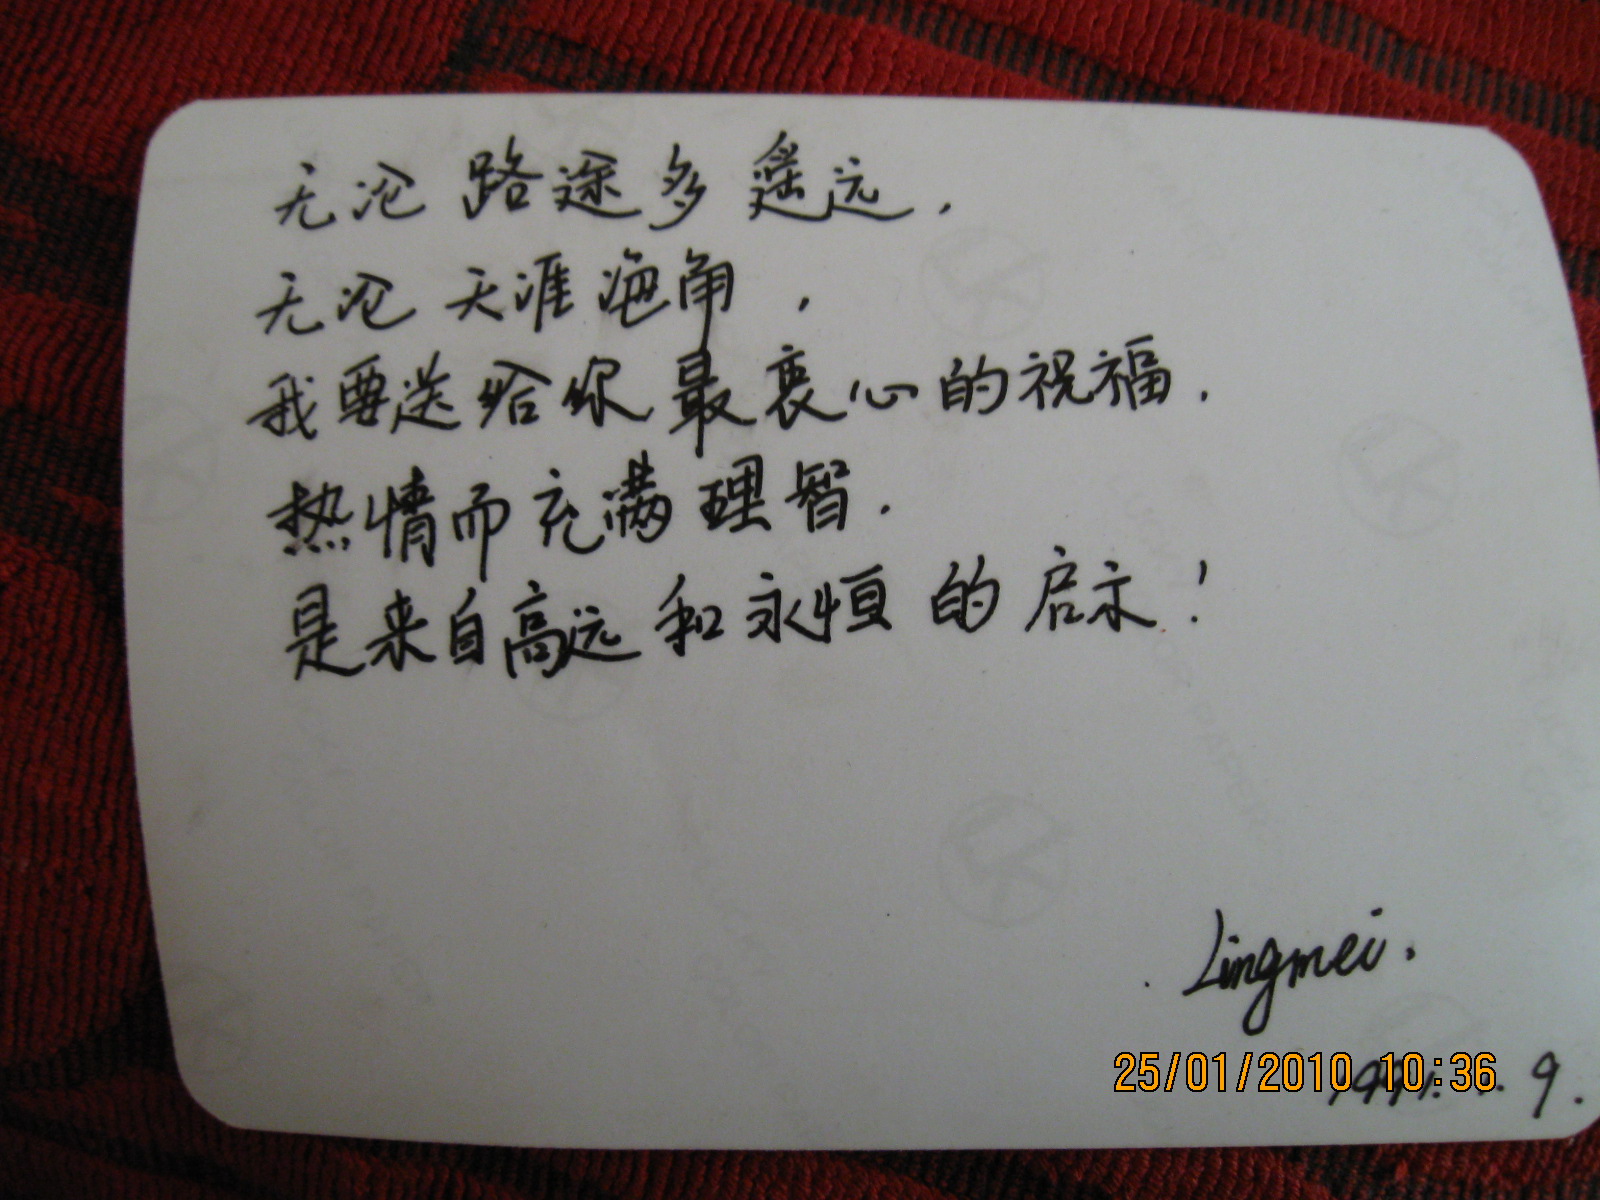 无论路途多遥远,
无论天涯海角,
我要送给你最衷心的祝福.
热情而充满理智.
是来自高远和永恒的启示!
Lingmei.
25/01/2010 10:36
9.